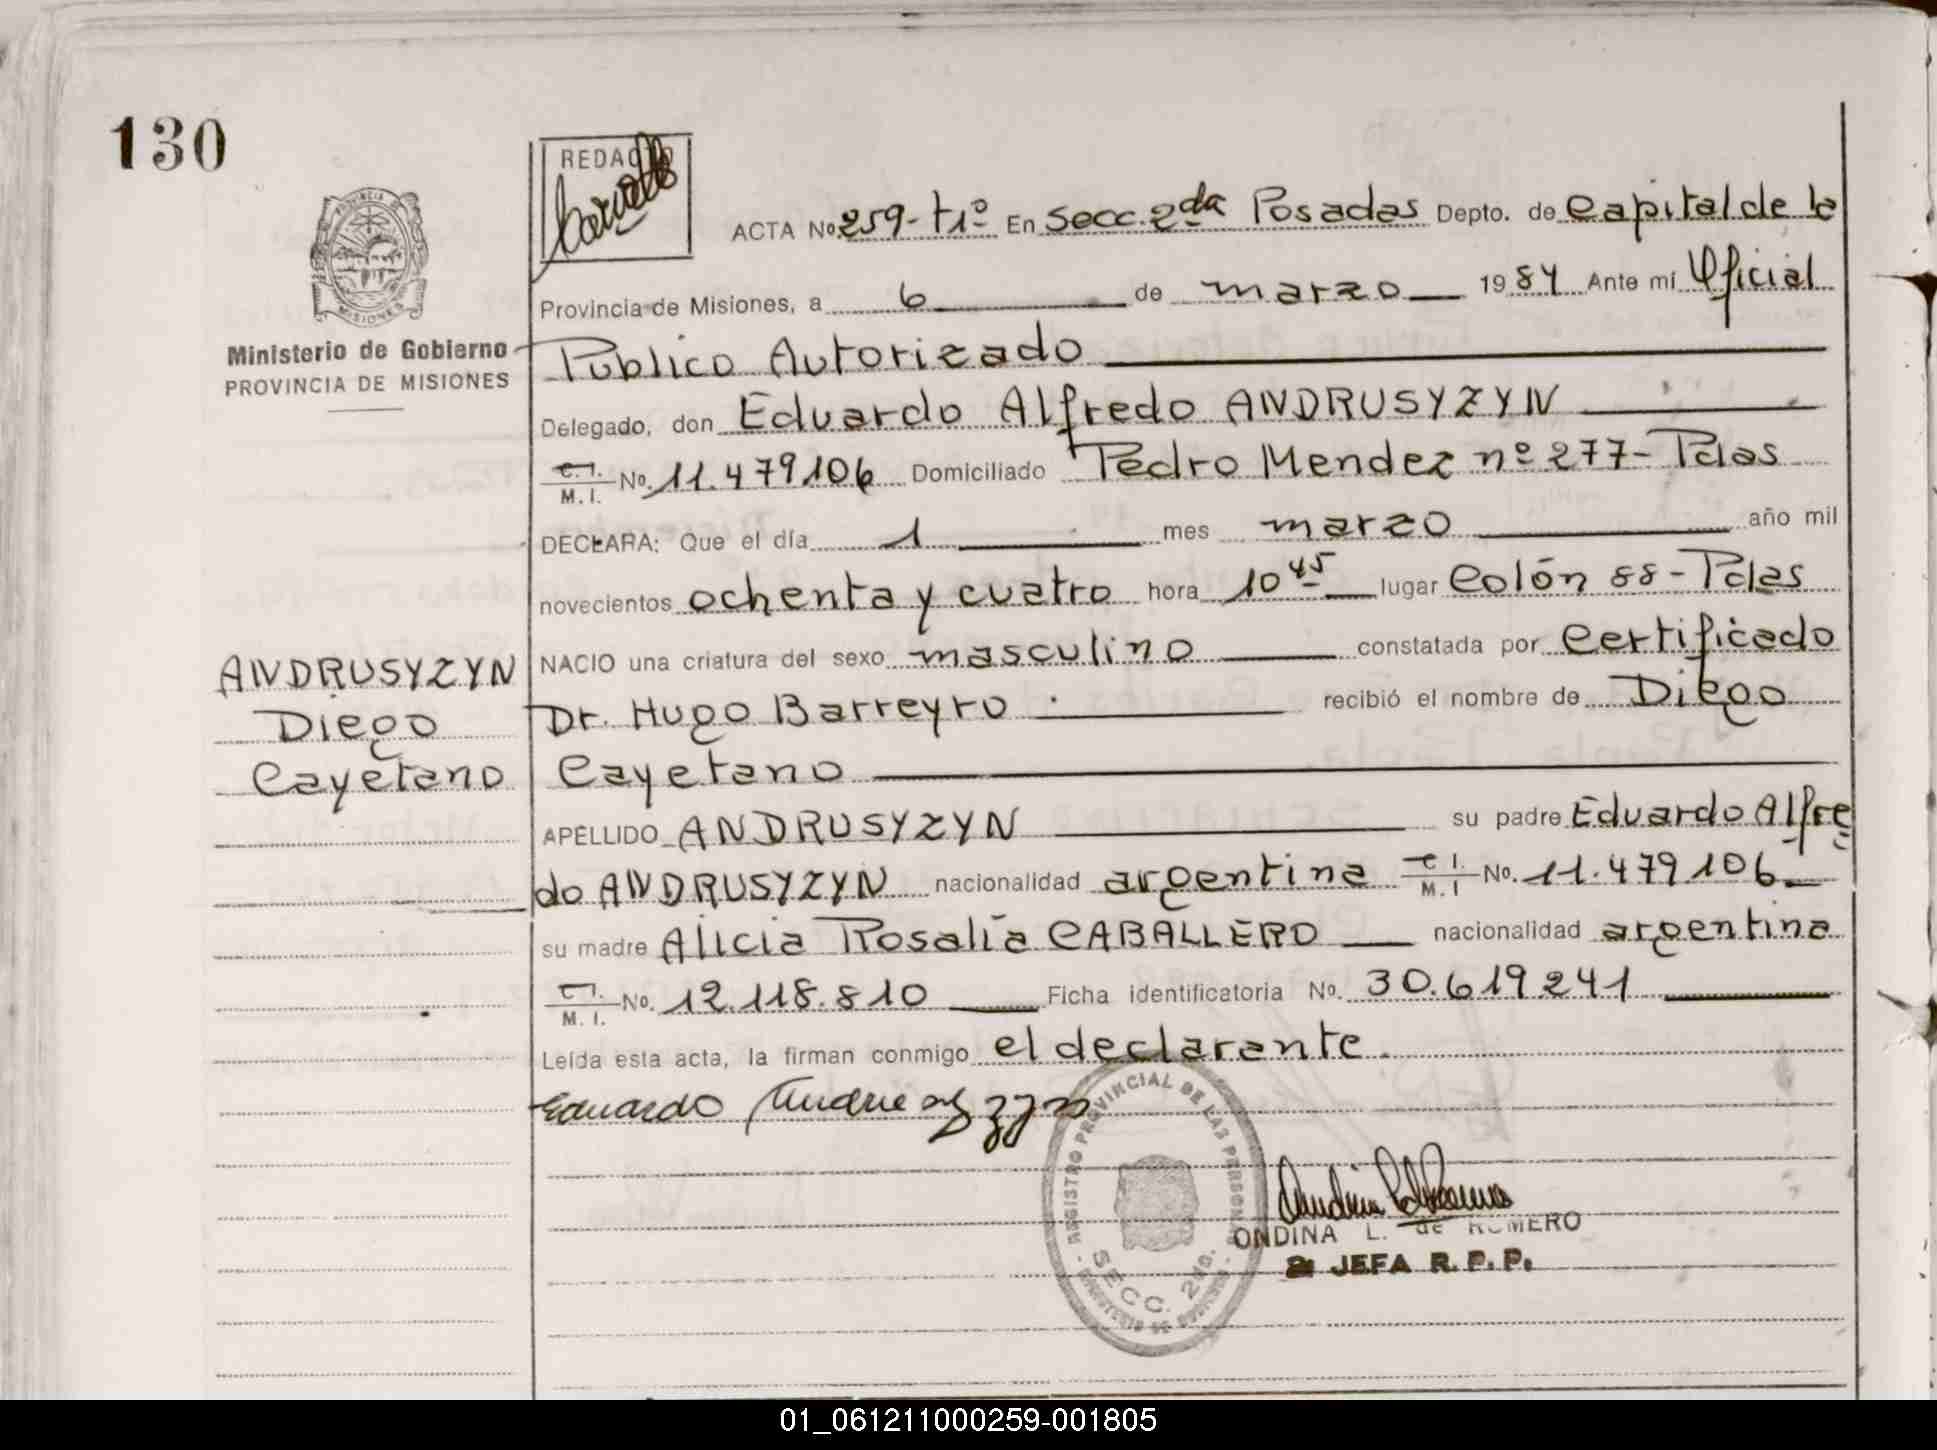 130
REDACTO
ACTA No. 259-t1º En Secc. 2da Posadas Depto. de Capital de la
Provincia de Misiones, a 6 de marzo 1984 Ante mí Oficial
Ministerio de Gobierno
PROVINCIA DE MISIONES
Público Autorizado
Delegado, don Eduardo Alfredo ANDRUSYZYN
C.I. M.I. No. 11.479106 Domiciliado Pedro Mendez nº 277-Pdas
DECLARA: Que el día 1 mes marzo año mil
novecientos ochenta y cuatro hora 10 45 lugar Colón 88-Pdas
ANDRUSYZYN
Diego
Cayetano
NACIO una criatura del sexo masculino constatada por Certificado
Dr. Hugo Barreyro recibió el nombre de Diego
Cayetano
APELLIDO ANDRUSYZYN su padre Eduardo Alfre
do ANDRUSYZYN nacionalidad argentina C.I. M.I No. 11.479106
su madre Alicia Rosalía CABALLERO nacionalidad argentina
C.I. M.I. No. 12.118.810 Ficha identificatoria No. 30.619241
Leída esta acta, la firman conmigo el declarante.
Eduardo Andrusyzyn
REGISTRO PROVINCIAL DE LAS PERSONAS
SECC. 2da.
MINISTERIO DE GOBIERNO
ONDINA L. de ROMERO
JEFA R.P.P.
01_061211000259-001805